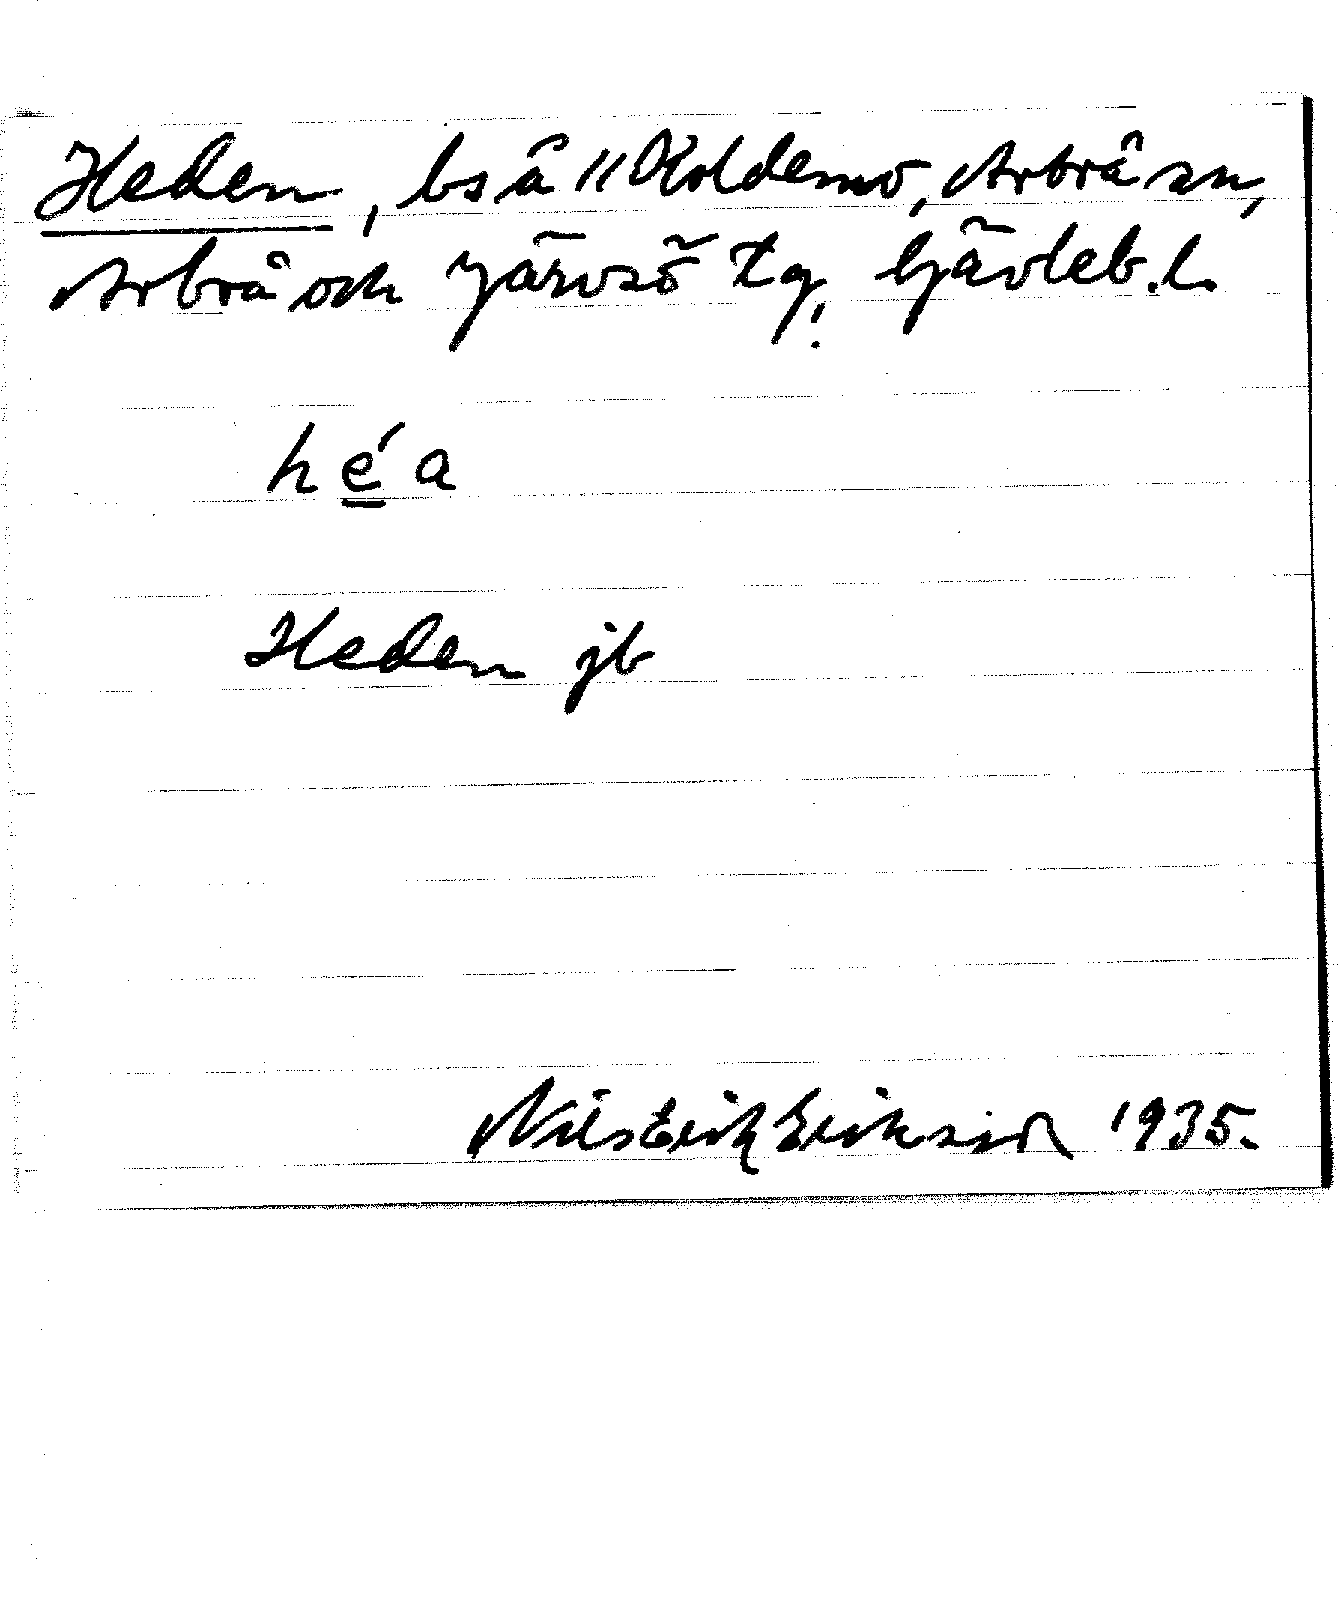 Heden, bs å 11 Koldemo, Arbrå sn,
Arbrå och Järvsö tg, Gävleb. l.
hé̲a
Heden jb
Nils Erik Eriksson 1935.